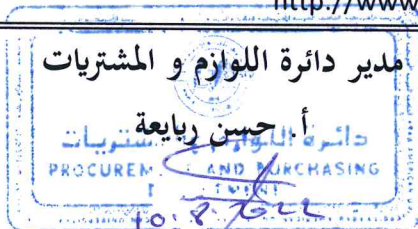 http://www
مدير دائرة اللوازم و المشتريات
أ. حسن ربايعة
دائرة اللوازم والمشتريات
PROCUREM AND PURCHASING
10.8.2022